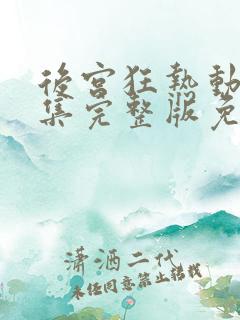 後宮狂熱動
集完整版免
瀟酒二代
未经同意禁止转载